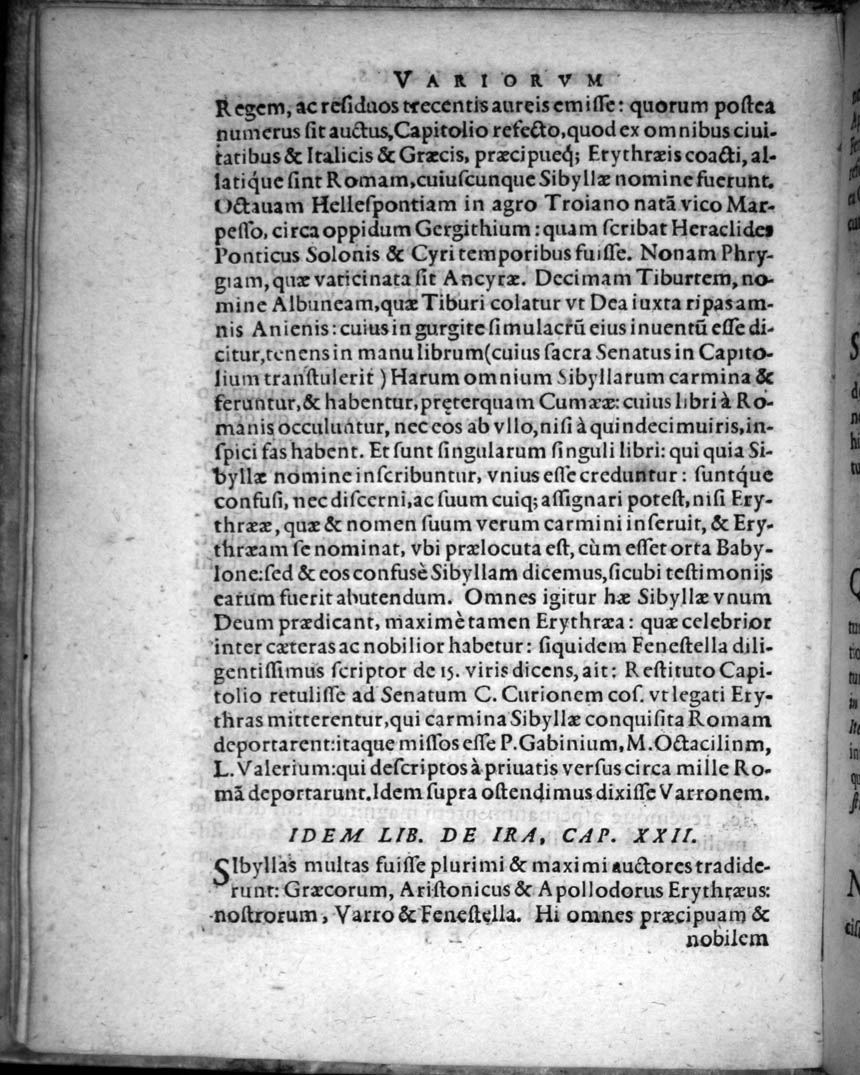 VARIORVM
Regem, ac reſiduos trecentis aureis emiſſe: quorum poſtea
numerus ſit auctus, Capitolio refecto, quod ex omnibus ciui-
tatibus & Italicis & Græcis, præcipueq́; Erythræis coacti, al-
latiq́ue ſint Romam, cuiuſcunque Sibyllæ nomine fuerunt.
Octauam Helleſpontiam in agro Troiano natã vico Mar-
peſſo, circa oppidum Gergithium: quam ſcribat Heraclides
Ponticus Solonis & Cyri temporibus fuiſſe. Nonam Phry-
giam, quæ vaticinata ſit Ancyræ. Decimam Tiburtem, no-
mine Albuneam, quæ Tiburi colatur vt Dea iuxta ripas am-
nis Anienis: cuius in gurgite ſimulacrũ eius inuentũ eſſe di-
citur, tenens in manu librum (cuius ſacra Senatus in Capito-
lium tranſtulerit) Harum omnium Sibyllarum carmina &
feruntur, & habentur, pręterquam Cumææ: cuius libri à Ro-
manis occuluntur, nec eos ab vllo, niſi à quindecimuiris, in-
ſpici fas habent. Et ſunt ſingularum ſinguli libri: qui quia Si-
byllæ nomine inſcribuntur, vnius eſſe creduntur: ſuntq́ue
confuſi, nec diſcerni, ac ſuum cuiq; aſſignari poteſt, niſi Ery-
thrææ, quæ & nomen ſuum verum carmini inſeruit, & Ery-
thræam ſe nominat, vbi prælocuta eſt, cùm eſſet orta Baby-
lone: ſed & eos confusè Sibyllam dicemus, ſicubi teſtimonijs
earum fuerit abutendum. Omnes igitur hæ Sibyllæ vnum
Deum prædicant, maximè tamen Erythræa: quæ celebrior
inter cæteras ac nobilior habetur: ſiquidem Feneſtella dili-
gentiſſimus ſcriptor de 15. viris dicens, ait: Reſtituto Capi-
tolio retuliſſe ad Senatum C. Curionem coſ. vt legati Ery-
thras mitterentur, qui carmina Sibyllæ conquiſita Romam
deportarent: itaque miſſos eſſe P. Gabinium, M. Octacilinm,
L. Valerium: qui deſcriptos à priuatis verſus circa mille Ro-
mã deportarunt. Idem ſupra oſtendimus dixiſſe Varronem.
IDEM LIB. DE IRA, CAP. XXII.
SIbyllas multas fuiſſe plurimi & maximi auctores tradide-
runt: Græcorum, Ariſtonicus & Apollodorus Erythræus:
noſtrorum, Varro & Feneſtella. Hi omnes præcipuam &
nobilem